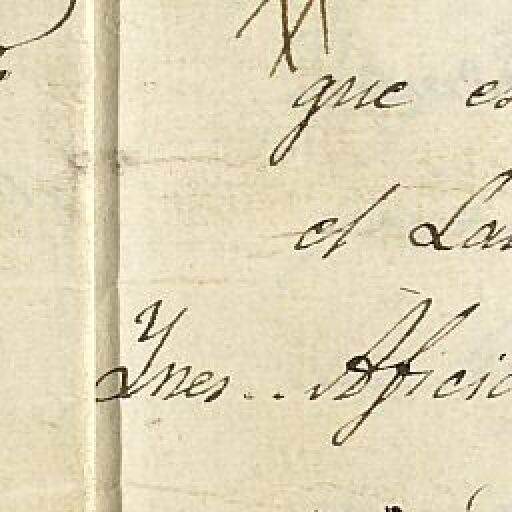 que es
el Lau
Ynes .. Aficio